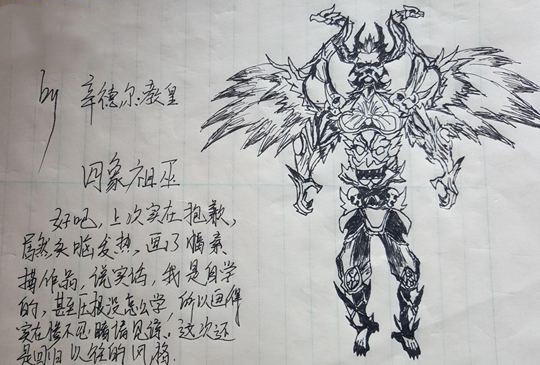 by 辛德尔教皇
四象祖巫
好吧，上次实在抱歉，
居然头脑发热，画了幅素
描作品，说实话，我是自学
的，甚至压根没怎么学，所以画得
实在惨不忍睹，请见谅。这次还
是回归以往的风格.